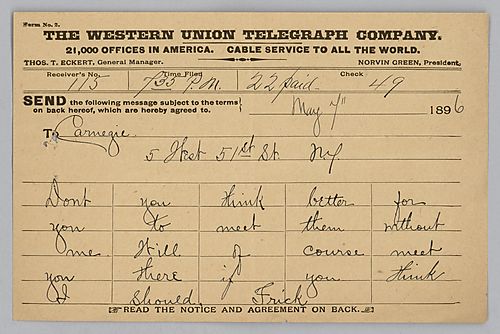 Form No. 2.
THE WESTERN UNION TELEGRAPH COMPANY.
21,000 OFFICES IN AMERICA. CABLE SERVICE TO ALL THE WORLD.
THOS. T. ECKERT, General Manager. NORVIN GREEN, President.
Receiver's No. Time Filed Check
115 7 35 P.M. 22 Paid 49
SEND the following message subject to the terms
on back hereof, which are hereby agreed to.
May 7" 1896
To Carnegie.
5 West 51st St. NY.
Dont you think better for
you to meet them without
me. Will of course meet
you there if you think
I should. Frick
READ THE NOTICE AND AGREEMENT ON BACK.